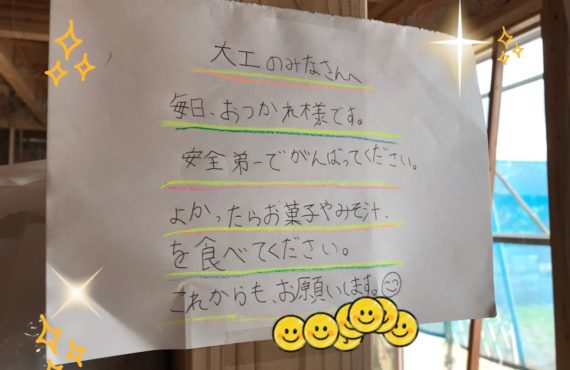 大工のみなさんへ
毎日、おつかれ様です。
安全第一でがんばってください。
よかったらお菓子やみそ汁、
を食べてください。
これからも、お願いします。